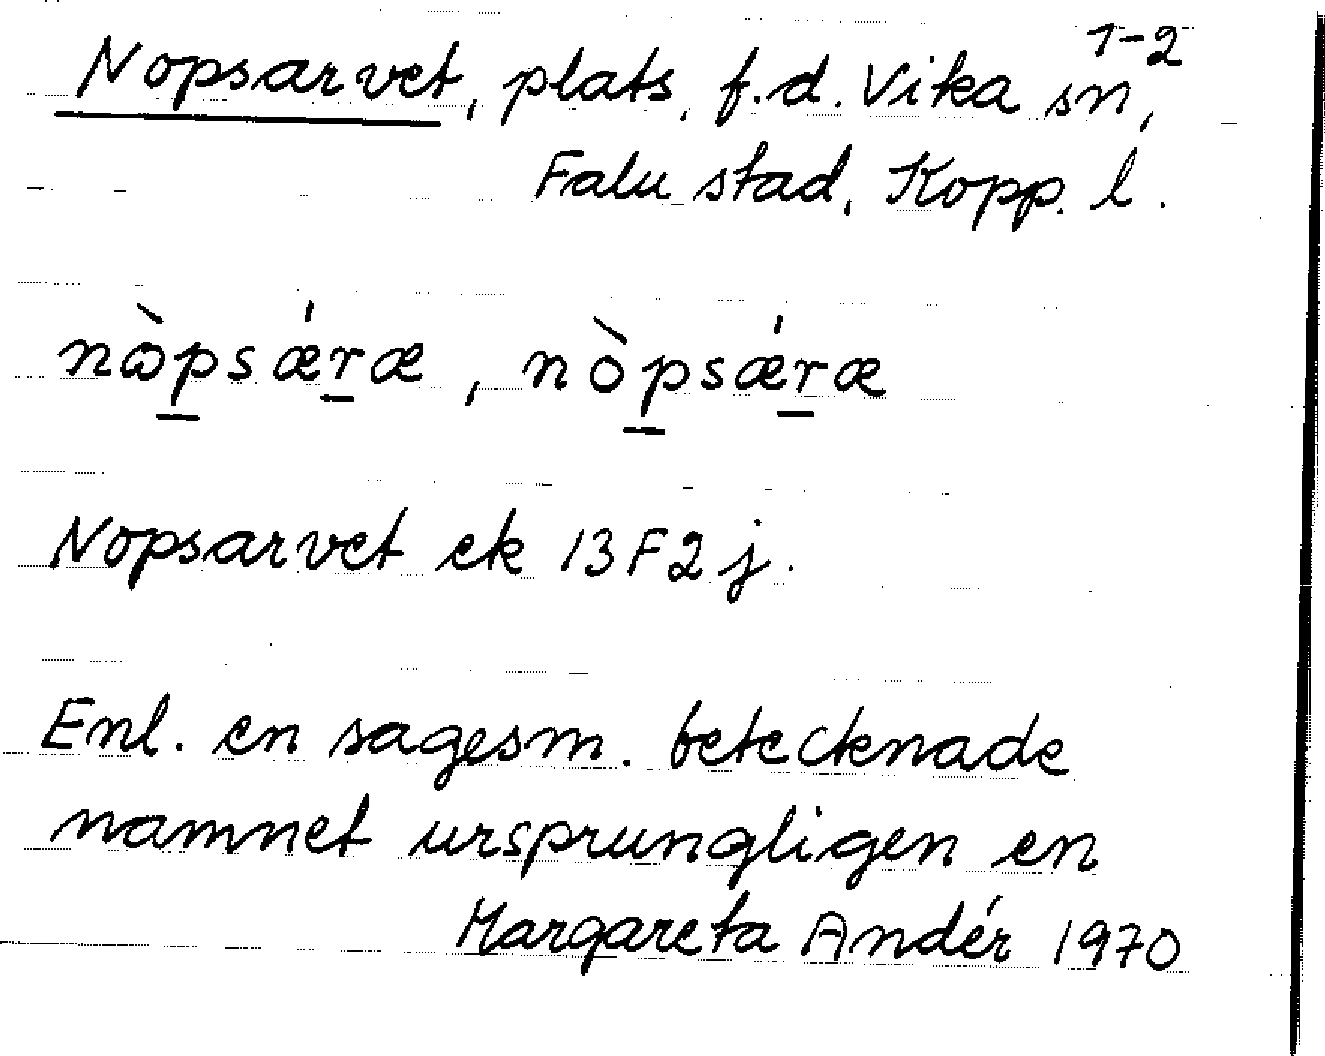 1-2
Nopsarvet, plats, f.d. Vika sn,
Falu stad, Kopp. l.
nὼp̲sǽr̲æ, nòp̲sǽr̲æ
Nopsarvet ek 13F2j.
Enl. en sagesm. betecknade
namnet ursprungligen en
Margareta Andér 1970